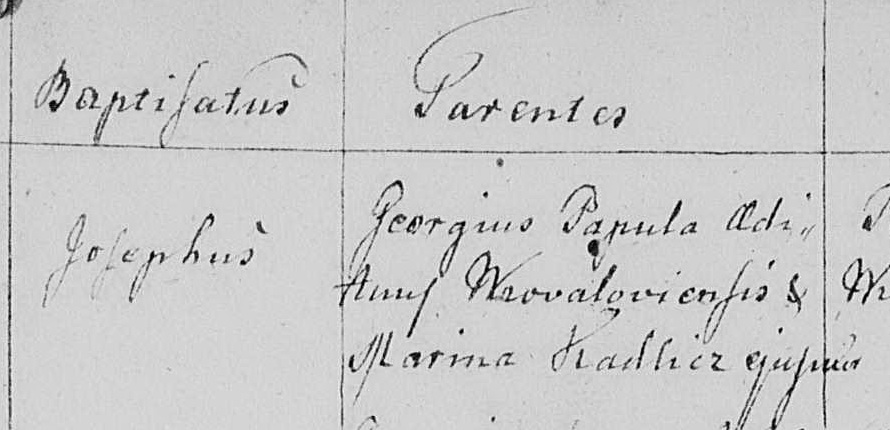 Baptisatus Parentes
Josephus
Georgius Papula Ædi„
Wrovaloviensis &
Marina Kadlicz ejus